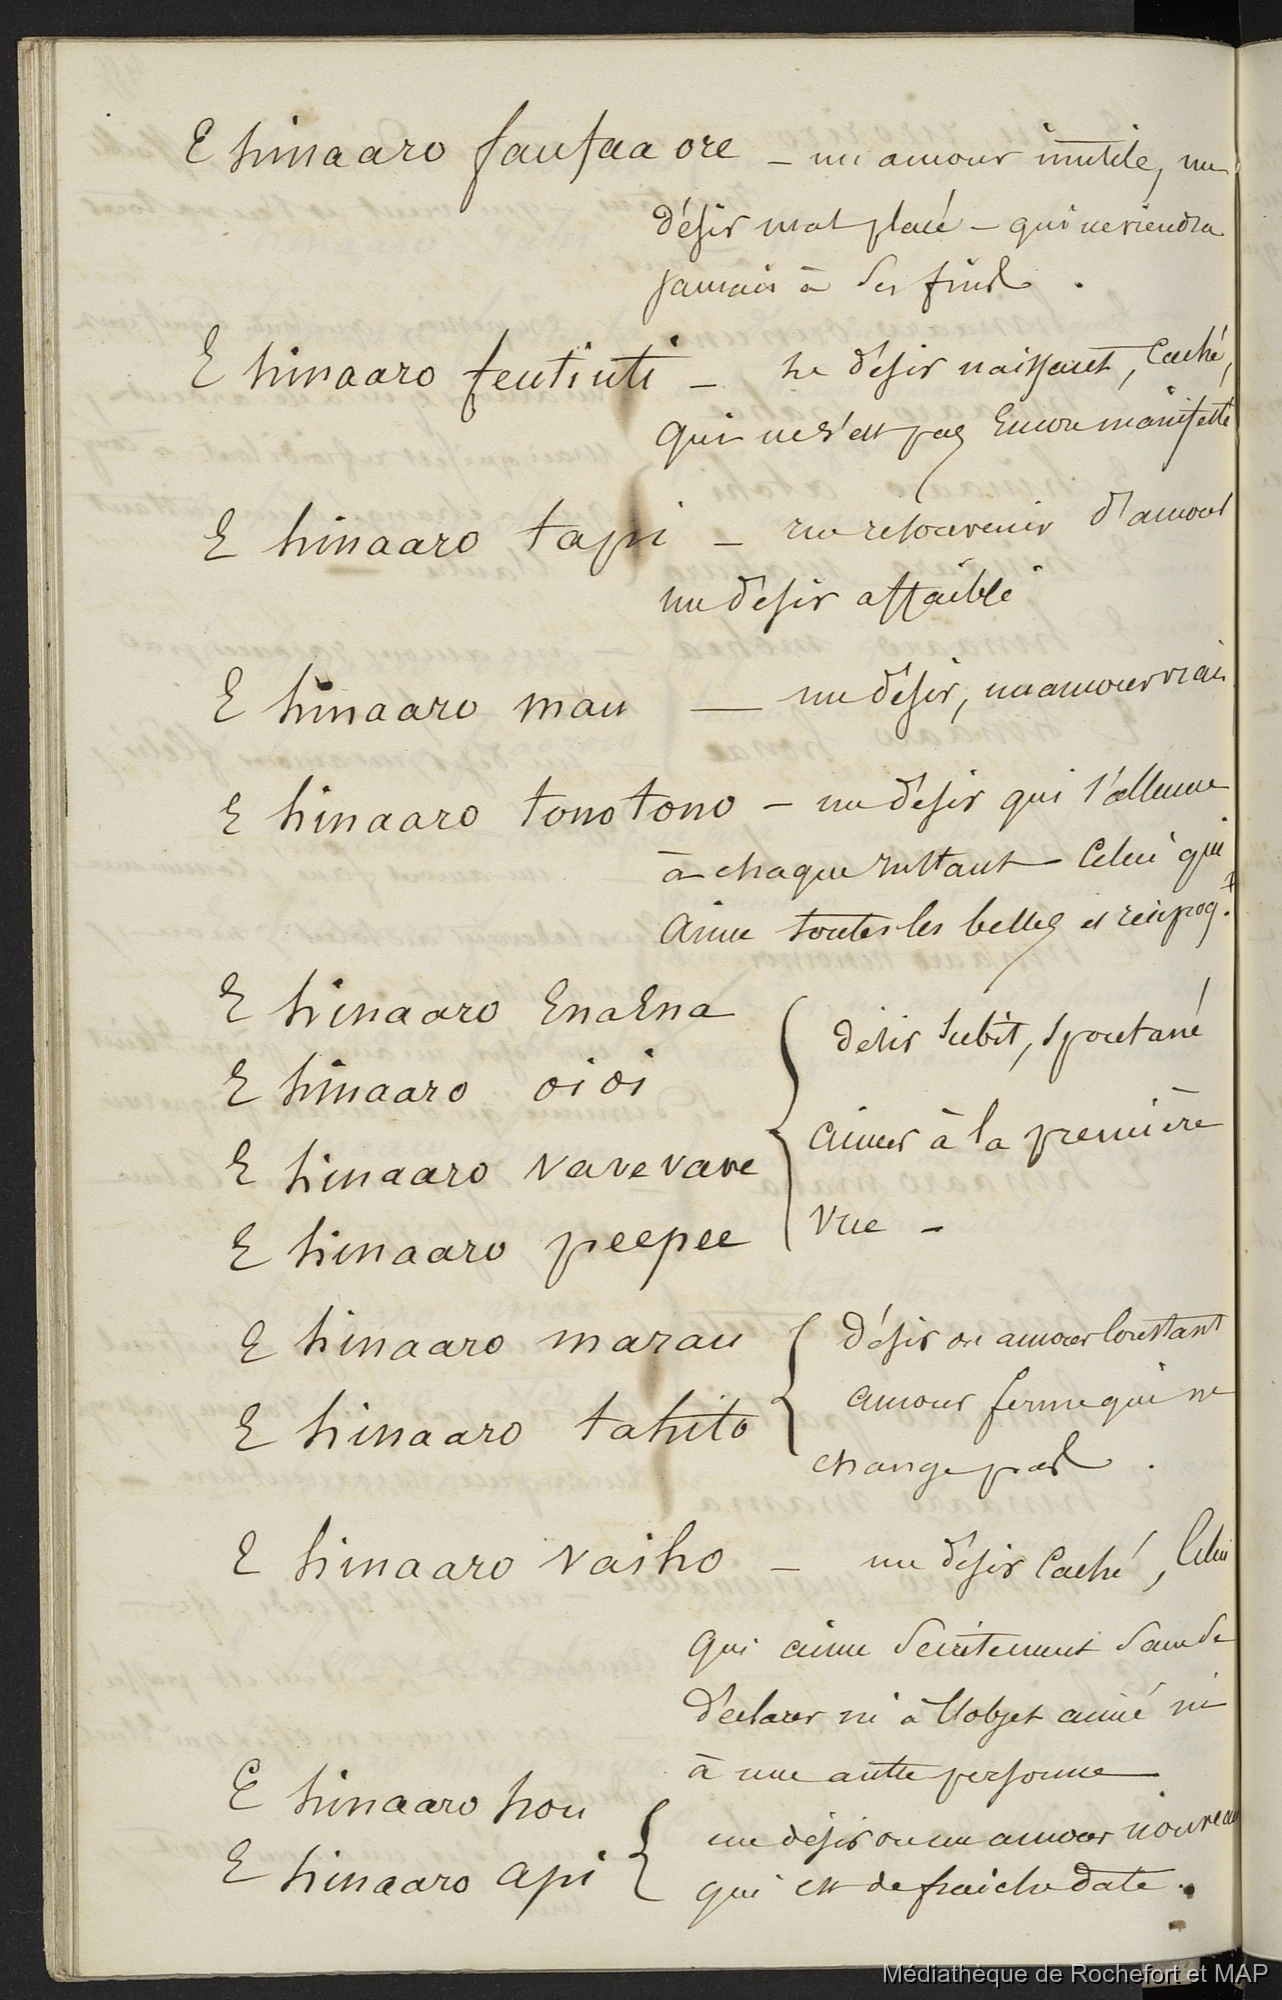 E hinaaro faufaa ore – un amour inutile, un
désir mal placé – qui ne viendra
jamais à ses fins.
E hinaaro feutiuti – le désir naissant, caché,
qui ne s'est pas encore manifesté
E hinaaro tapi – un resouvenir d'amour
un désir affaibli
E hinaaro mau — un désir, un amour vrai
E hinaaro tonotono – un désir qui s'allume
à chaque instant – Celui qui
aime toutes les belles et réciproq.t
E hinaaro Enaena
E hinaaro oioi
E hinaaro varevare
E hinaaro peepee
{ désir subit, spontané
aimer à la première
vue –
E hinaaro marau
E hinaaro tahito
{ Désir ou amour constant
amour ferme qui ne
change pas.
E hinaaro vaiho – un désir caché, Celui
qui aime secrètement sans se
déclarer ni à l'objet aimé ni
à une autre personne
E hinaaro hou
E hinaaro api
{ un désir ou un amour nouveau
qui est de fraiche date.
Médiathèque de Rochefort et MAP